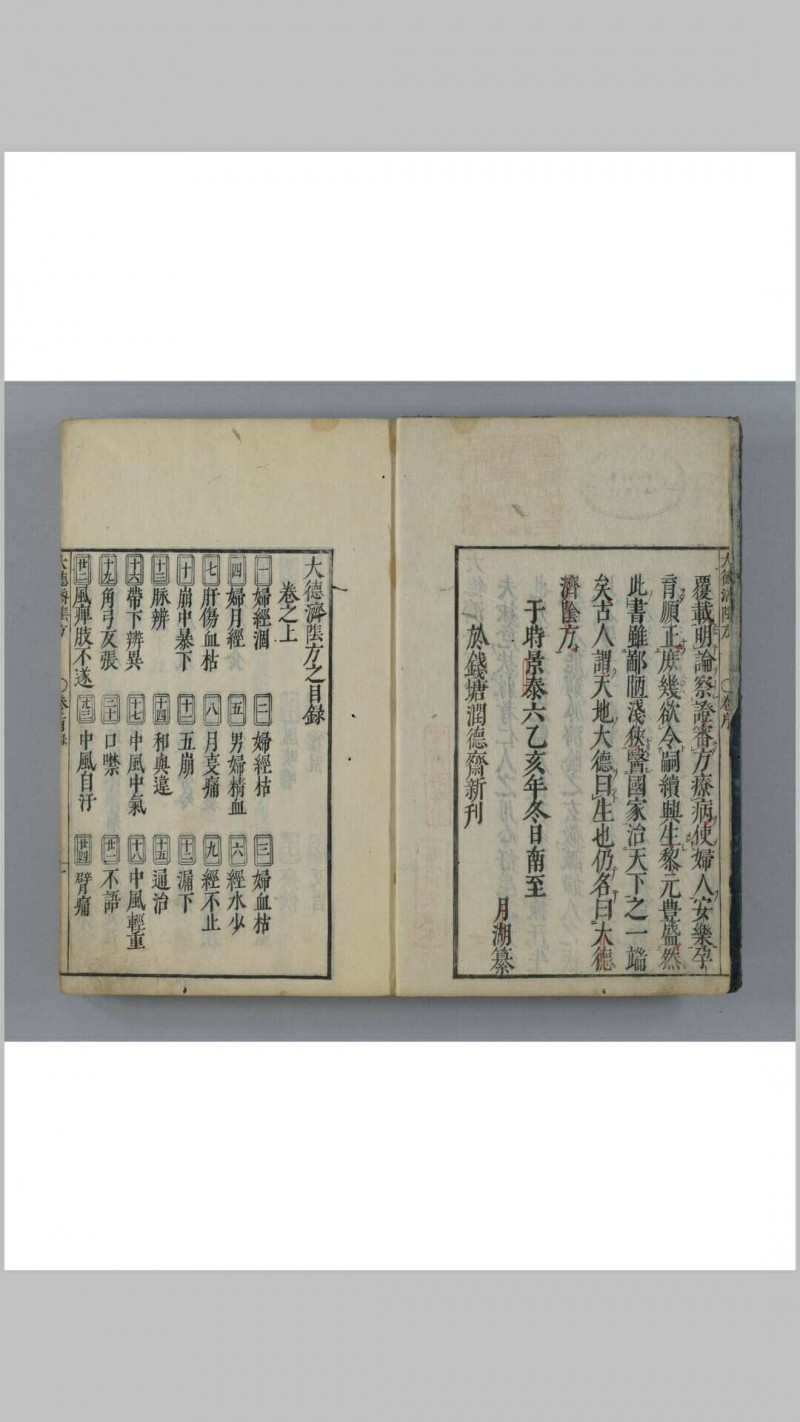 覆載明論察證審方療病使婦人安樂孕
育順正庶幾欲令嗣續興生黎元豊盛然
此書雖鄙陋淺狹醫國家治天下之一端
矣古人謂天地大德曰生也仍名曰大德
濟陰方
于時景泰六乙亥年冬日南至
月湖纂
於錢塘潤德齋新刊
大德濟陰方之目録
卷之上
一 婦經涸 二 婦經枯 三 婦血枯
四 婦月經 五 男婦精血 六 經水少
七 肝傷血枯 八 月支痛 九 經不止
十 崩中暴下 十一 五崩 十二 漏下
十三 脉辨 十四 和與違 十五 通治
十六 帶下辨異 十七 中風中氣 十八 中風輕重
十九 角弓反張 二十 口噤 廿一 不語
廿二 風痺肢不遂 廿三 中風自汗 廿四 臂痛